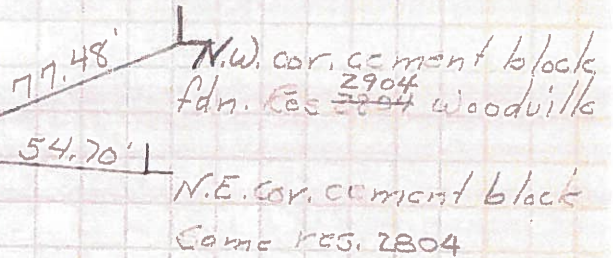 77.48'
N.W. cor. cement block
2904
fdn. Res 2804 Woodville
54.70'
N.E. cor. cement block
Same res. 2804